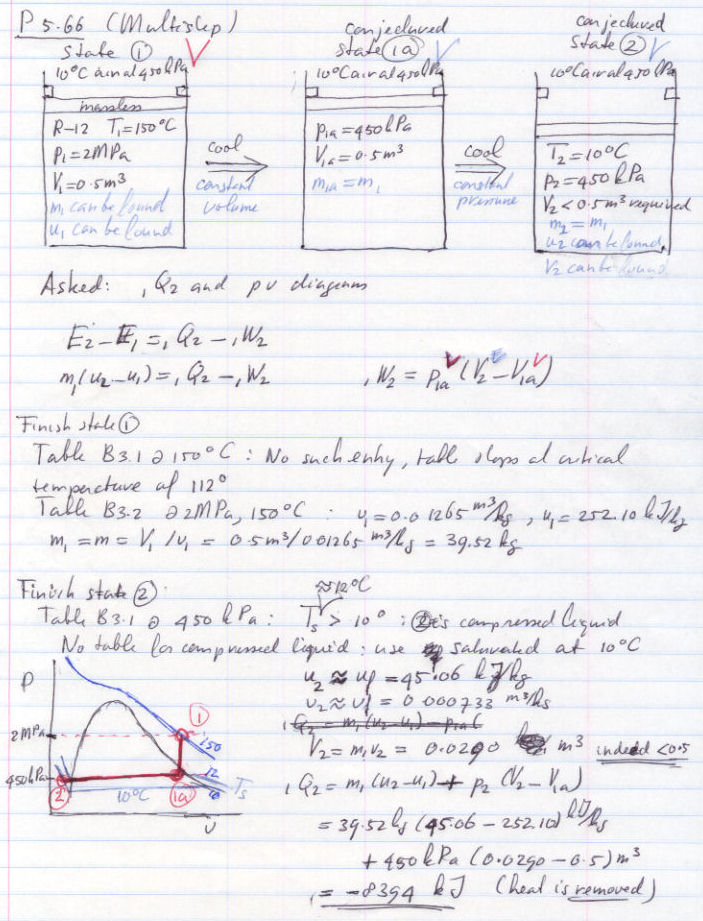 P 5.66 (Multistep)
State 1
10°C air at 450kPa
massless
R-12 T1=150°C
P1=2MPa
V1=0.5m³
m1 can be found
u1 can be found
cool
constant
volume
conjectured
state 1a
10°C air at 450kPa
P1a=450kPa
V1a=0.5m³
m1a=m1
cool
constant
pressure
conjectured
State 2
10°C air at 450kPa
T2=10°C
P2=450kPa
V2<0.5m³ required
m2=m1
u2 can be found
V2 can be found
Asked: 1Q2 and pv diagram
E2-E1=1Q2-1W2
m1(u2-u1)=1Q2-1W2
1W2=P1a(V2-V1a)
Finish state 1
Table B3.1 @ 150°C: No such entry, table stops at critical
temperature of 112°
Table B3.2 @ 2MPa, 150°C: v1=0.01265 m³/kg, u1=252.10 kJ/kg
m1=m=V1/v1=0.5m³/0.01265 m³/kg=39.52 kg
Finish state 2:
≈12°C
Table B3.1 @ 450kPa: Ts>10°: 2 is compressed liquid
No table for compressed liquid: use saturated at 10°C
u2≈uf=45.06 kJ/kg
v2≈vf=0.000733 m³/kg
1Q2=m1(u2-u1)-p1a(
V2=m1v2=0.0290 m³ indeed<0.5
1Q2=m1(u2-u1)+p2(V2-V1a)
=39.52kg(45.06-252.10)kJ/kg
+450kPa(0.0290-0.5)m³
=-8394 kJ (heat is removed)
P
2MPa
450kPa
1
150
12
10
Ts
2
10°C
1a
v